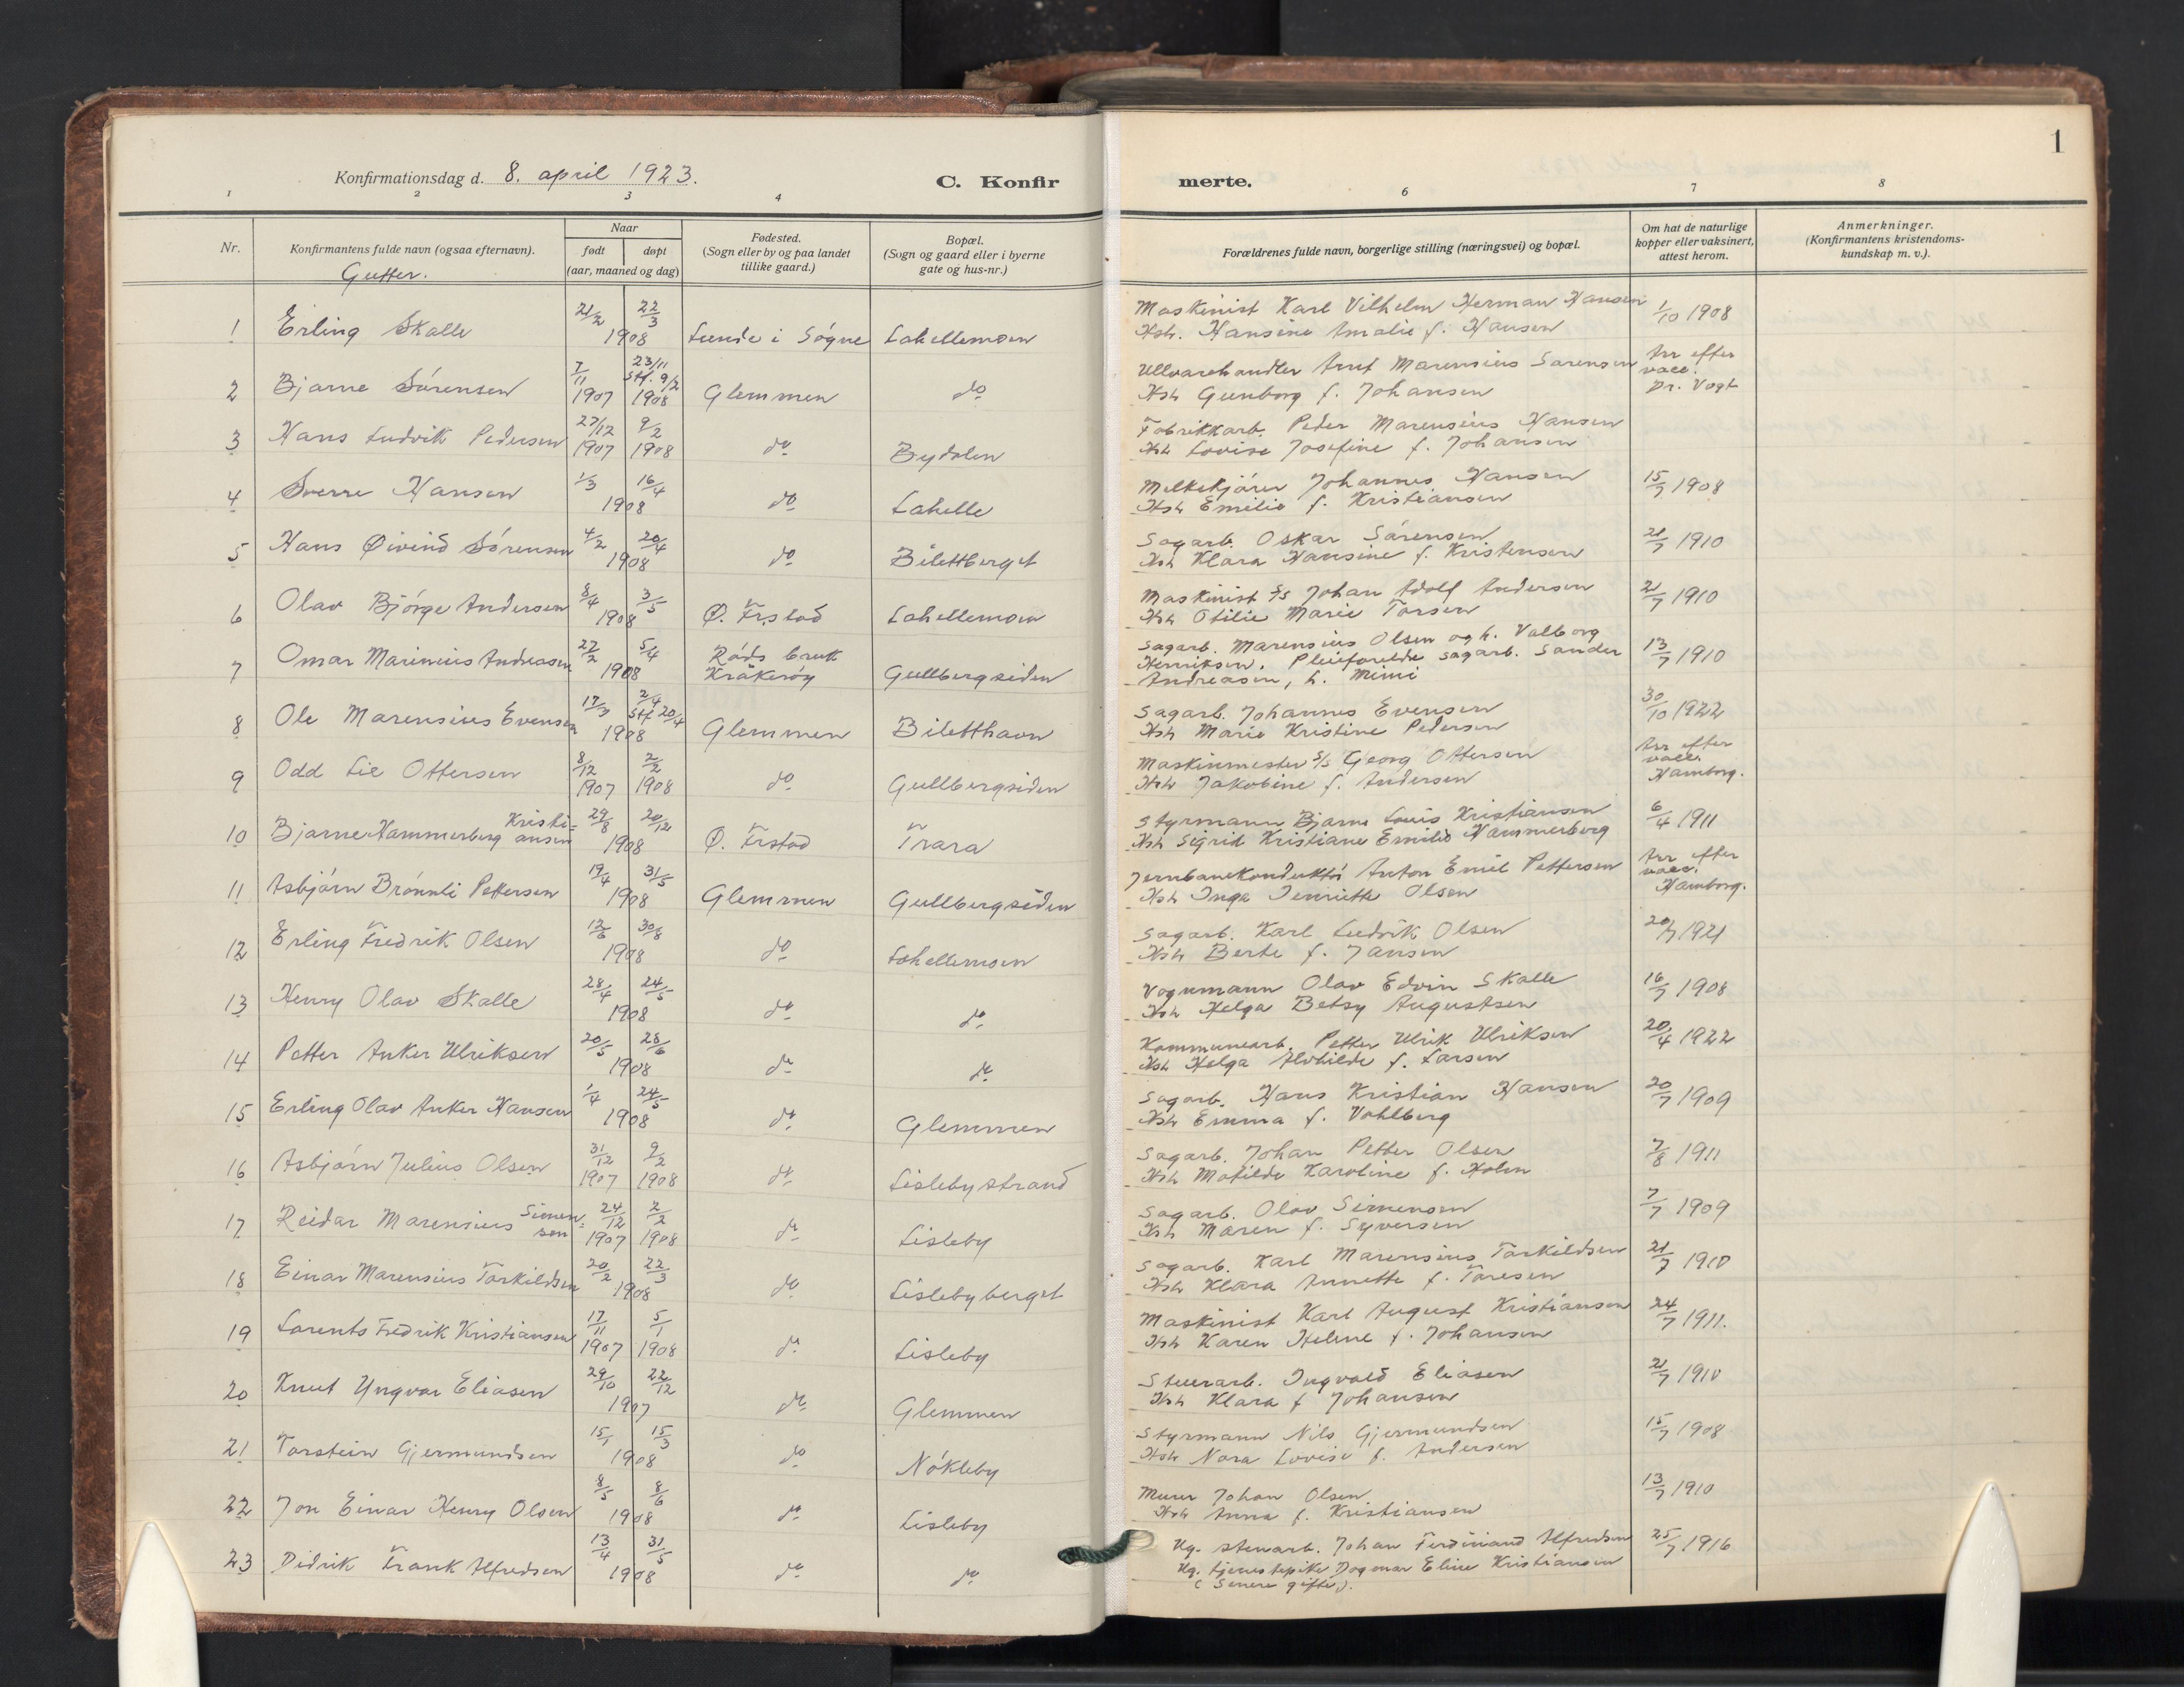 1
Konfirmationsdag d. 8. april 1923.
C. Konfirmerte.
1 2 3 4 6 7 8
Nr.
Konfirmantens fulde navn (ogsaa efternavn).
Gutter.
Naar
født døpt
(aar, maaned og dag)
Fødested.
(Sogn eller by og paa landet
tillike gaard.)
Bopæl.
(Sogn og gaard eller i byerne
gate og hus-nr.)
Forældrenes fulde navn, borgerlige stilling (næringsvei) og bopæl.
Om hat de naturlige
kopper eller vaksinert,
attest herom.
Anmerkninger.
(Konfirmantens kristendoms-
kundskap m. v.).
1 Erling Skalle 21/2 22/3 1908 Lunde i Søgne Lahellemoen Maskinist Karl Vilhelm Herman Hansen 1/10 1908
Hsh. Hansine Amalie f. Hansen
2 Bjarne Sørensen 7/11 1907 23/11 Stf. 9/2 1908 Glemmen do Ullvarehandler Arnt Marensius Sørensen Arr efter vacc. Dr. Vogt
Hsh Gunborg f. Johansen
3 Hans Ludvik Pedersen 27/12 1907 9/2 1908 do Bydalen Fabrikkarb. Peder Marensius Hansen
Hsh Lovise Josefine f. Johansen
4 Sverre Hansen 1/3 16/4 1908 do Lahelle Melkekjører Johannes Hansen 15/7 1908
Hsh Emilie f. Kristiansen
5 Hans Øivind Sørensen 4/2 20/4 1908 do Bilettberget Sagarb. Oskar Sørensen 21/7 1910
Hsh Klara Hansine f. Kristensen
6 Olav Bjørge Andersen 8/4 3/5 1908 Ø. Frstad Lahellemoen Maskinist S/S Johan Adolf Andersen 21/7 1910
Hsh Otilie Marie Torsen
7 Omar Marinius Andreasen 22/2 5/4 1908 Råds bruk Kråkerøy Gullbergsiden Sagarb. Marensius Olsen og h. Valborg 13/7 1910
Henriksen. Pleieforeldre sagarb. Sander
Andreasen, h. Mimi
8 Ole Marensius Evensen 17/3 2/4 Stf 20/4 1908 Glemmen Biletthavn Sagarb. Johannes Evensen 30/10 1922
Hsh Marie Kristine Pedersen
9 Odd Lie Ottersen 8/12 1907 2/2 1908 do Gullbergsiden Maskinmester S/S Georg Ottersen Arr efter vacc. Hamborg.
Hsh Jakobine f. Andersen
10 Bjarne Hammerberg Kristi=ansen 29/8 20/12 1908 Ø. Frstad Trara Styrmann Bjarne Louis Kristiansen 6/4 1911
Hsh Sigrid Kristiane Emilie Hammerberg
11 Asbjørn Brønnli Pettersen 19/4 31/5 1908 Glemmen Gullbergsiden Jernbanekonduktør Anton Emil Pettersen Arr efter vacc. Hamborg.
Hsh Inga Jenriette Olsen
12 Erling Fredrik Olsen 12/6 30/8 1908 do Lahellemoen Sagarb. Karl Ludvik Olsen 20/7 1921
Hsh Berte f. Jansen
13 Henry Olav Skalle 28/4 24/5 1908 do do Vognmann Olav Edvin Skalle 16/7 1908
Hsh Helga Betsy Augustsen
14 Petter Anker Ulriksen 20/5 28/6 1908 do do Kommunearb. Petter Ulrik Ulriksen 20/4 1922
Hsh Helga Alvhilde f. Larsen
15 Erling Olav Anker Hansen 1/4 24/5 1908 do Glemmen Sagarb. Hans Kristian Hansen 20/7 1909
Hsh Emma f. Vahlberg
16 Asbjørn Julius Olsen 31/12 1907 9/2 1908 do Lislebystrand Sagarb. Johan Petter Olsen 7/8 1911
Hsh Matilde Karoline f. Holm
17 Reidar Marensius Simen=sen 24/12 1907 2/2 1908 do Lisleby Sagarb. Olav Simensen 7/7 1909
Hsh Maren f. Syversen
18 Einar Marensius Torkildsen 20/2 22/3 1908 do Lislebyberget Sagarb. Karl Marensius Torkildsen 21/7 1910
Hsh Klara Annette f. Toresen
19 Lorents Fredrik Kristiansen 17/11 1907 5/1 1908 do Lisleby Maskinist Karl August Kristiansen 24/7 1911.
Hsh Karen Helene f. Johansen
20 Knut Yngvar Eliasen 29/10 22/12 1907 do Glemmen Stuerarb. Ingvald Eliasen 21/7 1910
Hsh Klara f Johansen
21 Torstein Gjermundsen 15/1 15/3 1908 do Nøkleby Styrmann Nils Gjermundsen 15/7 1908
Hsh Nora Lovise f. Andersen
22 Jon Einar Henry Olsen 8/5 8/6 1908 do Lisleby Murer Johan Olsen 13/7 1910
Hsh Anna f. Kristiansen
23 Didrik Frank Alfredsen 13/4 31/5 1908 do do Ug. stenarb. Johan Ferdinand Alfredsen 25/7 1916
Ug. tjenestepike Dagmar Eline Kristiansen
(Senere gifte).